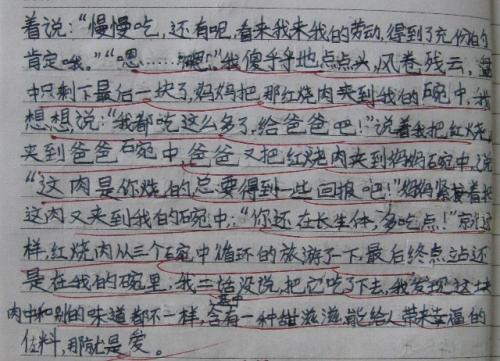 着说：“慢慢吃，还有呢，看来我来我的劳动，得到了充份的
肯定哦。”“嗯……嗯”我傻乎乎地点点头，风卷残云，盘
中只剩下最后一块了，妈妈把那红烧肉夹到我的碗中，我
想想，说：“我都吃这么多了，给爸爸吧！”说着我把红烧
夹到爸爸碗中，爸爸又把红烧肉夹到妈妈碗中，说
“这肉是你烧的总要得到一些回报吧！”妈妈紧接着把
这肉又夹到我的碗中：“你还在长生体，多吃点！”就这
样，红烧肉从三个碗中循环的旅游了一下，最后终点站还
是在我的碗里，我二话没说，把它吃了下去，我发现这块
肉中和别的味道都不一样，其中含有一种甜滋滋，能给人带来幸福的
佐料，那就是爱。